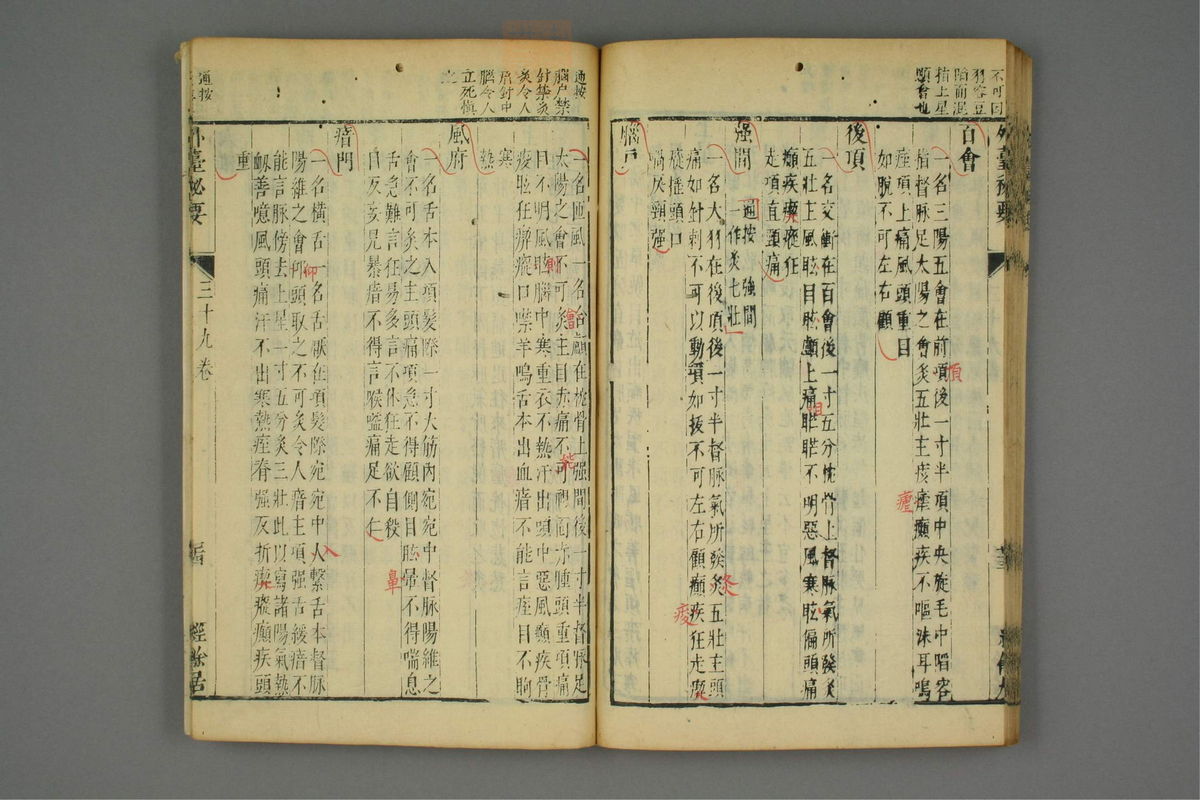 不可因
指上星
顖會也
外臺秘要
百會
一名三陽五會在前項後一寸半項中央旋毛中陷容
指督脉足太陽之會灸五壯主痎瘧癲疾不嘔沫耳鳴
痓項上痛風頭重目
如脫不可左右顧
後項
一名交衝在百會後一寸五分枕骨上督脉氣所發灸
五壯主風眩目䀮顱上痛䀮䀮不明惡風寒眩徧頭痛
癲疾瘈瘲狂
走項直頭痛
强間
通按强間
一作灸七壯
一名大羽在後項後一寸半督脉氣所發灸五壯主頭
痛如針刺不可以動項如拔不可左右顧癲疾狂走瘈
瘲搖頭口
喎戾頸强
腦戶
項
瘧
疸
冬
痠
通按
腦戶禁
針禁灸
灸令人
瘖針中
腦令人
立死慎
之
一名匝風一名合顱在枕骨上强間後一寸半督脉足
太陽之會不可灸主目赤痛不可視面赤腫頭重項痛
目不明風眩腦中寒重衣不熱汗出頭中惡風癲疾骨
痠眩狂瘈瘲口噤羊鳴舌本出血瘖不能言痓目不眴
寒
熱
風府
一名舌本入項髮際一寸大筋內宛宛中督脉陽維之
會不可灸之主頭痛項急不得顧側目䀮暈不得喘息
舌急難言狂易多言不休狂走欲自殺
目反妄見暴瘖不得言喉嗌痛足不仁
瘖門
一名橫舌一名舌厭在項髮際宛宛中人繫舌本督脉
陽維之會仰頭取之不可灸灸令人瘖主項强舌緩瘖不
能言脉傍去上星一寸五分灸三壯此以寫諸陽氣熱
衂善噫風頭痛汗不出寒熱痓脊强反折瘈瘲癲疾頭
重
外臺秘要
三十九卷
經餘居
通按
會
能
仰
入
鼻